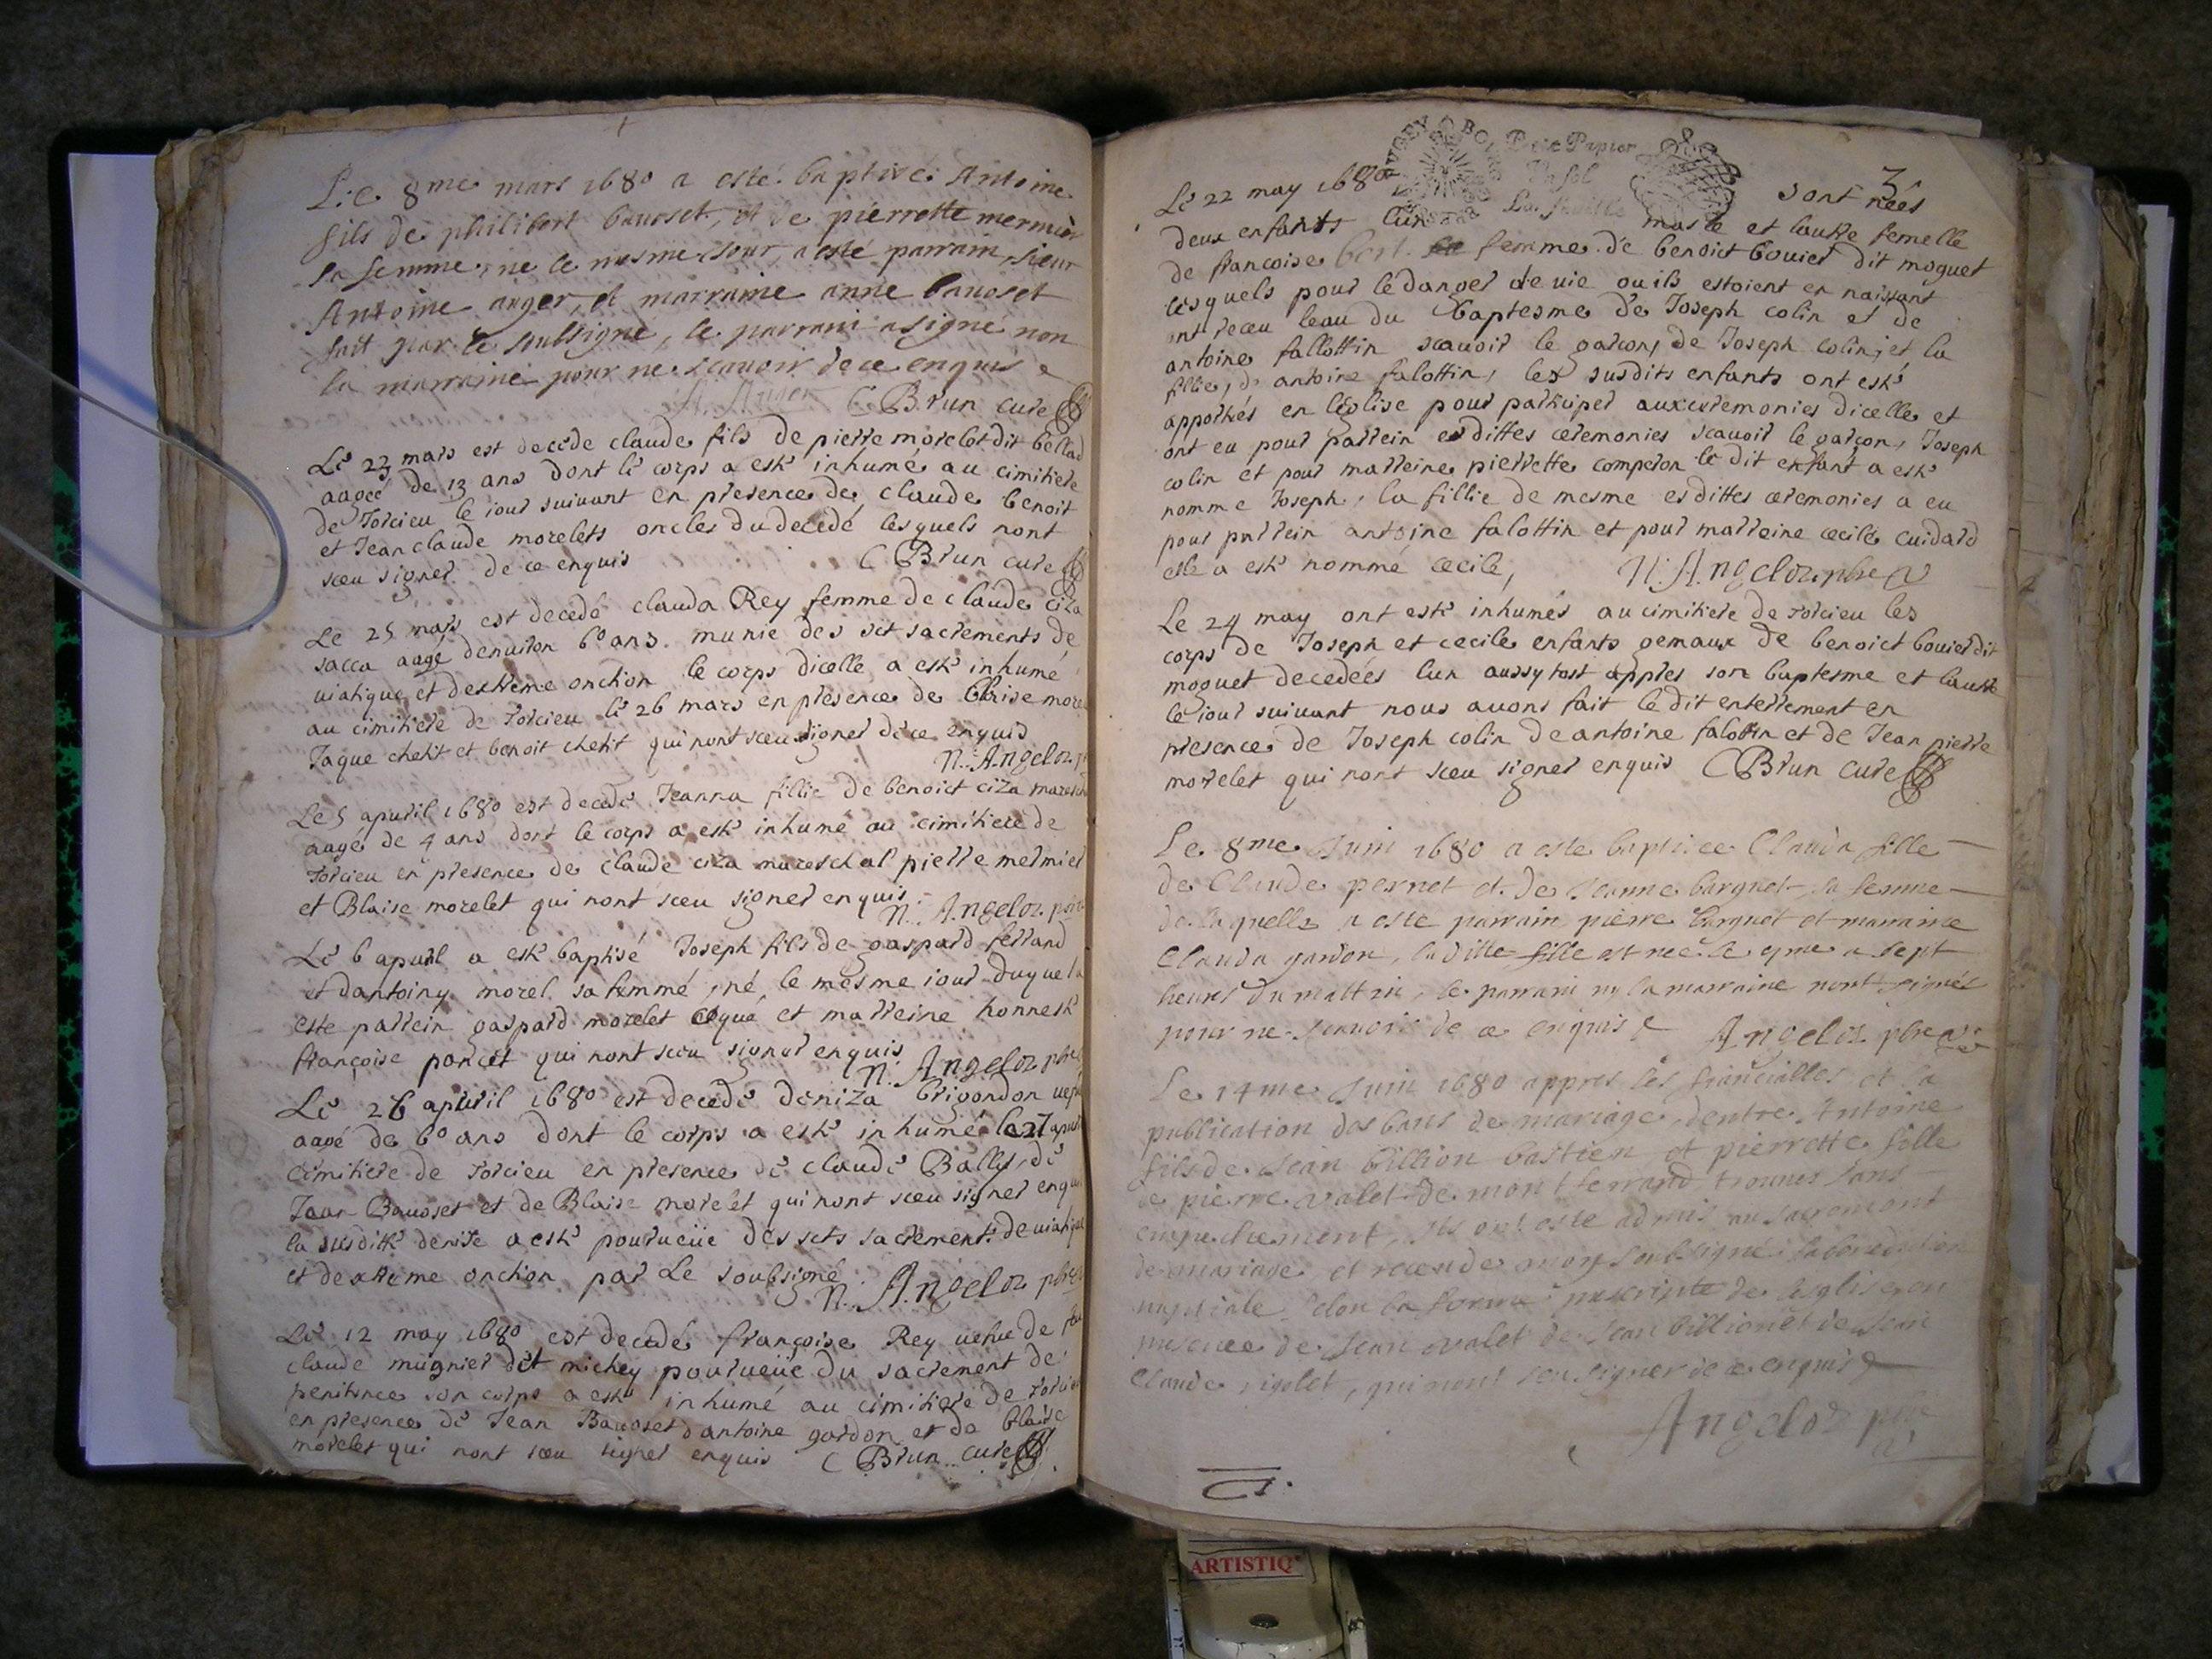 Le 8me mars 1680 a esté baptivé Antoine
fils de philibert bauoset, et de pierrette mermier
sa femme, ne le mesme Jour, a esté parrain, sieur
Antoine anger, et marraine anne bauoset
fait par le soubsigné, le parrain a signé non
la marraine pour ne scauoir de ce enquis
A. Auger C Brun cure
Le 23 mars est decede claude fils de pierre morelet dit bellad
aagée de 13 ans dont le corps a esté inhumé au cimitiere
de Torcieu le iour suiuant en presence de claude benoit
et Jean claude morelets oncles du decedé lesquels nont
sceu signer de ce enquis C Brun cure
Le 25 mars est decedé clauda Rey femme de claude ciza
sacca aagé denuiron 60 ans munie des sct sacrements de
uiatique et dextreme onction le corps dicelle a esté inhumé
au cimitiere de torcieu le 26 mars en presence de Blaise more
Jaque chetit et benoit chetit qui nont sceu signer de ce enquis
N. Angeloz
Le 5 apuril 1680 est decedé Jeanna fillie de benoict ciza maresch
aagé de 4 ans dont le corps a esté inhumé au cimitiere de
torcieu en presence de claude ciza mareschal pierre mermier
et Blaise morelet qui nont sceu signer enquis
N. Angeloz
Le 6 apuril a esté baptisé Joseph fils de gaspard ferrand
et dantoiny morel sa femmé, né le mesme iour duquel a
esté parrein gaspard morelet et marreine honneste
françoise poncet qui nont sceu signer enquis
N. Angeloz pbre
Le 26 apuril 1680 est decedé deniza brigondon
aagé de 60 ans dont le corps a esté inhumé le 27 apuril
cimitiere de torcieu en presence de claude Bally, de
Jean Bauoset et de Blaise morelet qui nont sceu signer enquis
la susditte denise a esté pourueüe des scts sacrements de uiatique
et dextreme onction par Le soubsigné
N. Angeloz pbre
Le 12 may 1680 est decedé françoise Rey uefue de feu
claude mugnier dit michey pourueüe du sacrement de
penitence son corps a esté inhumé au cimitiere de torcieu
en presence de Jean Bauoset dantoine gordon et de blaise
morelet qui nont sceu signer enquis C Brun cure
Petit Papier
Vn sol
La feuille
3
Le 22 may 1680 sont néés
deux enfants lun masle et lautre femelle
de francoise femme de benoict bouier dit moguet
lesquels pour le danger de uie ou ils estoient en naissant
ont receu leau du baptesme de Joseph colin et de
antoine fallottin scauoir le garcon, de Joseph colin, et la
fillie, de antoine falottin, les susdits enfants ont esté
apportés en leglise pour participer aux ceremonies dicelle et
ont eu pour parrein esdittes ceremonies scauoir le garcon, Joseph
colin et pour marreine pierrette comperon le dit enfant a esté
nomme Joseph, la fillie de mesme esdittes ceremonies a eu
pour parrein antoine falottin et pour marreine cecile cuidard
elle a esté nommé cecile, N. Angeloz pbre
Le 24 may ont esté inhumés au cimitiere de torcieu les
corps de Joseph et cecile enfants gemaux de benoict bouier dit
moguet decedéés lun aussytost appres son baptesme et lautre
le iour suiuant nous auons fait le dit enterrement en
presence de Joseph colin de antoine falottin et de Jean pierre
morelet qui nont sceu signer enquis C Brun cure
Le 8me Juin 1680 a este baptisee Clauda fille
de Claude pernet et de Jeanne barguet, sa femme
de laquelle a este parrain pierre barguet et marraine
Clauda gordon, laditte fille est neé le a sept
heures du mattin, le parrain ny la marraine nont signés
pour ne scauoir de ce enquis Angeloz pbre
Le 14me Juin 1680 appres les fiancialles et la
publication des bans de mariage, dentre Antoine
fils de Jean billion bastien et pierrette fille
de pierre valet de montferrand trouues sans
empechement, ils ont este admis au sacrement
de mariage et receu de moy soubsigné la benediction
nuptiale selon la forme prescripte de leglise, en
presence de Jean valet de Jean billion et de Jean
Claude rigolet, qui nont sceu signer de ce enquis
Angeloz pbre